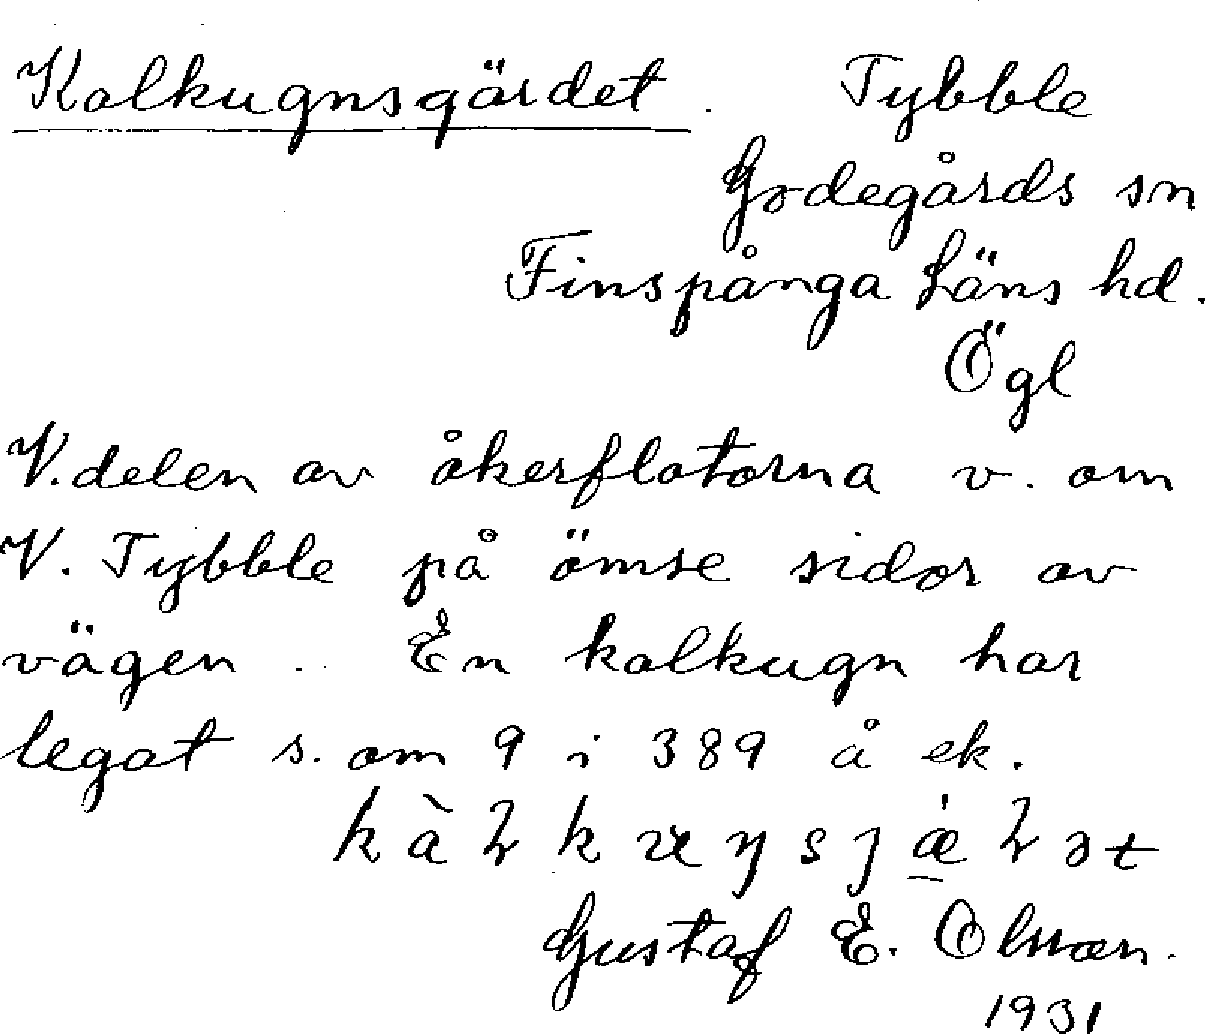 Kalkugnsgärdet. Tybble
Godegårds sn
Finspånga Läns hd.
Ögl
V. delen av åkerflatorna v. om
V. Tybble på ömse sidor av
vägen .. En kalkugn har
legat s. om 9 i 389 å ek.
Gustaf E. Olsson.
1931